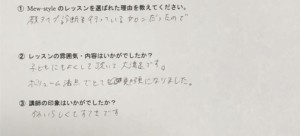 ① Mew-styleのレッスンを選ばれた理由を教えてください。
顔タイプ診断を行っているサロンだったので
② レッスンの雰囲気・内容はいかがでしたか?
子どもにもやさしく
大満足です。
ボリューム満点でとても
になりました。
③ 講師の印象はいかがでしたか?
かわいらしくてすてきです